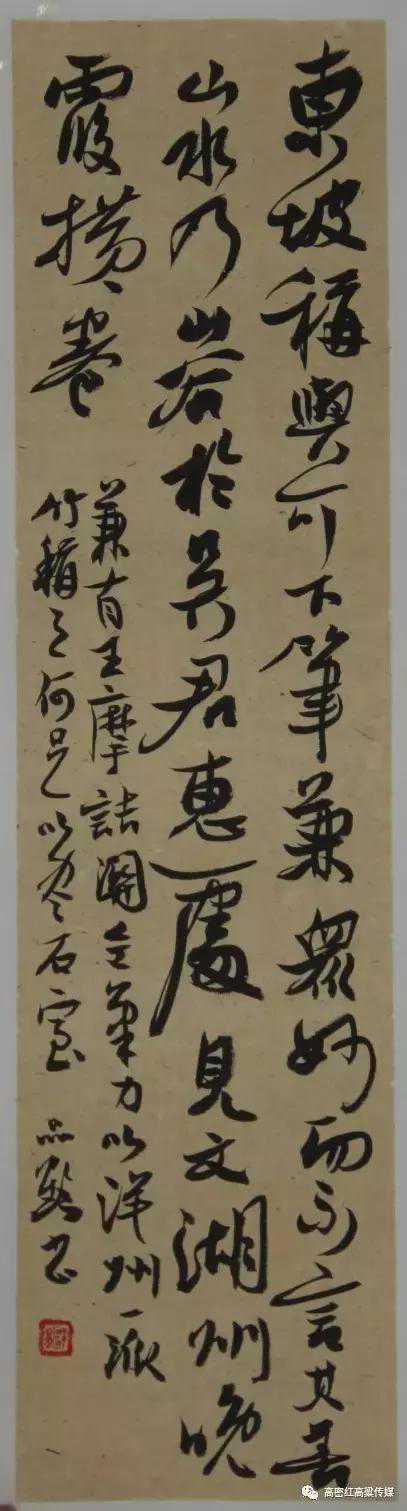 東坡稱與可下筆兼眾妙而不言其善
山水乃山谷於吳君惠處見文湖州晚
霞橫卷
兼有王摩詰關仝筆力以洋州一派
竹稱之何足以盡石室
書
高密红高粱传媒